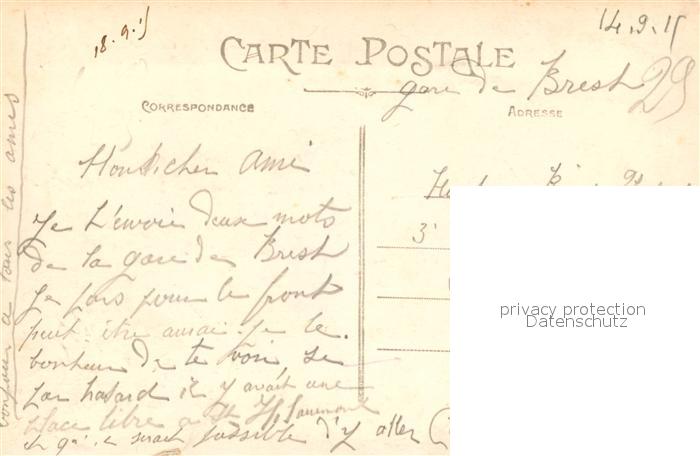 18.9.15
14.9.15
CARTE POSTALE
gare de Brest
29
CORRESPONDANCE
ADRESSE
Mon cher Ami
3
Je t'envoie deux mots
de la gare de Brest
je pars pour le front
peut être aurai-je le
bonheur de te voir si
par hasard il y avait une
place libre a St
et qu'il serait possible d'y aller (
bonjour a tous les amis
privacy protection
Datenschutz